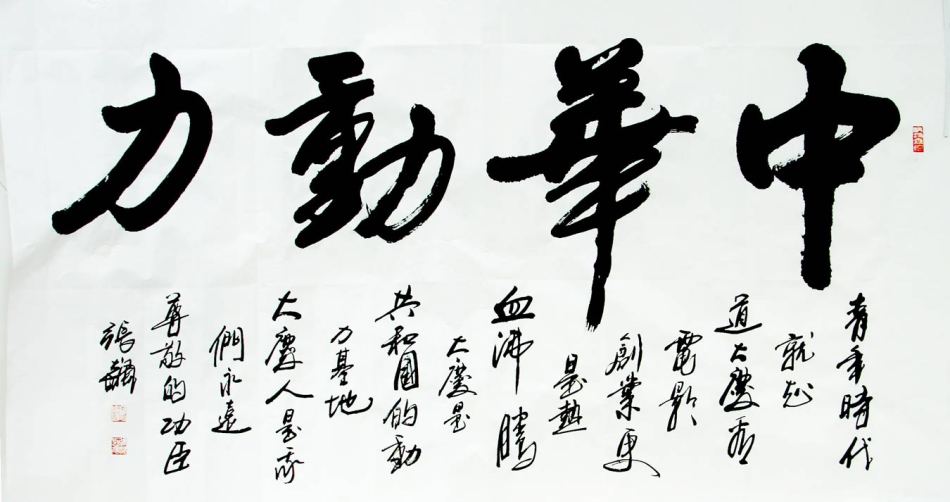 中華動力
青年時代
就知
道大慶看
電影
創業更
是熱
血沸騰
大慶是
共和國的動
力基地
大慶人是我
們永遠
尊敬的功臣
張